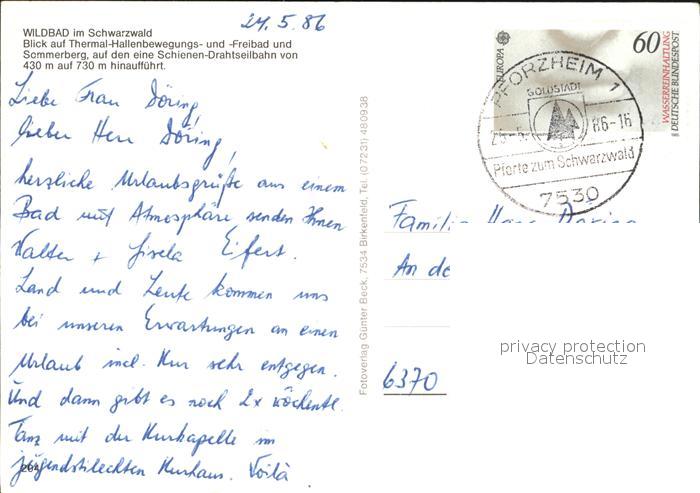 24.5.86
WILDBAD im Schwarzwald
Blick auf Thermal-Hallenbewegungs- und -Freibad und
Sommerberg, auf den eine Schienen-Drahtseilbahn von
430 m auf 730 m hinaufführt.
Liebe Frau Döring,
lieber Herr Döring,
herzliche Urlaubsgrüße aus einem
Bad mit Atmosphäre senden Ihnen
Walter + Gisela Eifert.
Land und Leute kommen uns
bei unseren Erwartungen an einen
Urlaub incl. Kur sehr entgegen.
Und dann gibt es noch 2x wöchentl.
Tanz mit der Kurkapelle im
jugendstilechten Kurhaus. Voilà
204
Fotoverlag Günter Beck, 7534 Birkenfeld, Tel. (07231) 480938
EUROPA
60
WASSERREINHALTUNG
DEUTSCHE BUNDESPOST
PFORZHEIM 1
GOLDSTADT
86-16
Pforte zum Schwarzwald
7530
Familie
An
6370
privacy protection
Datenschutz